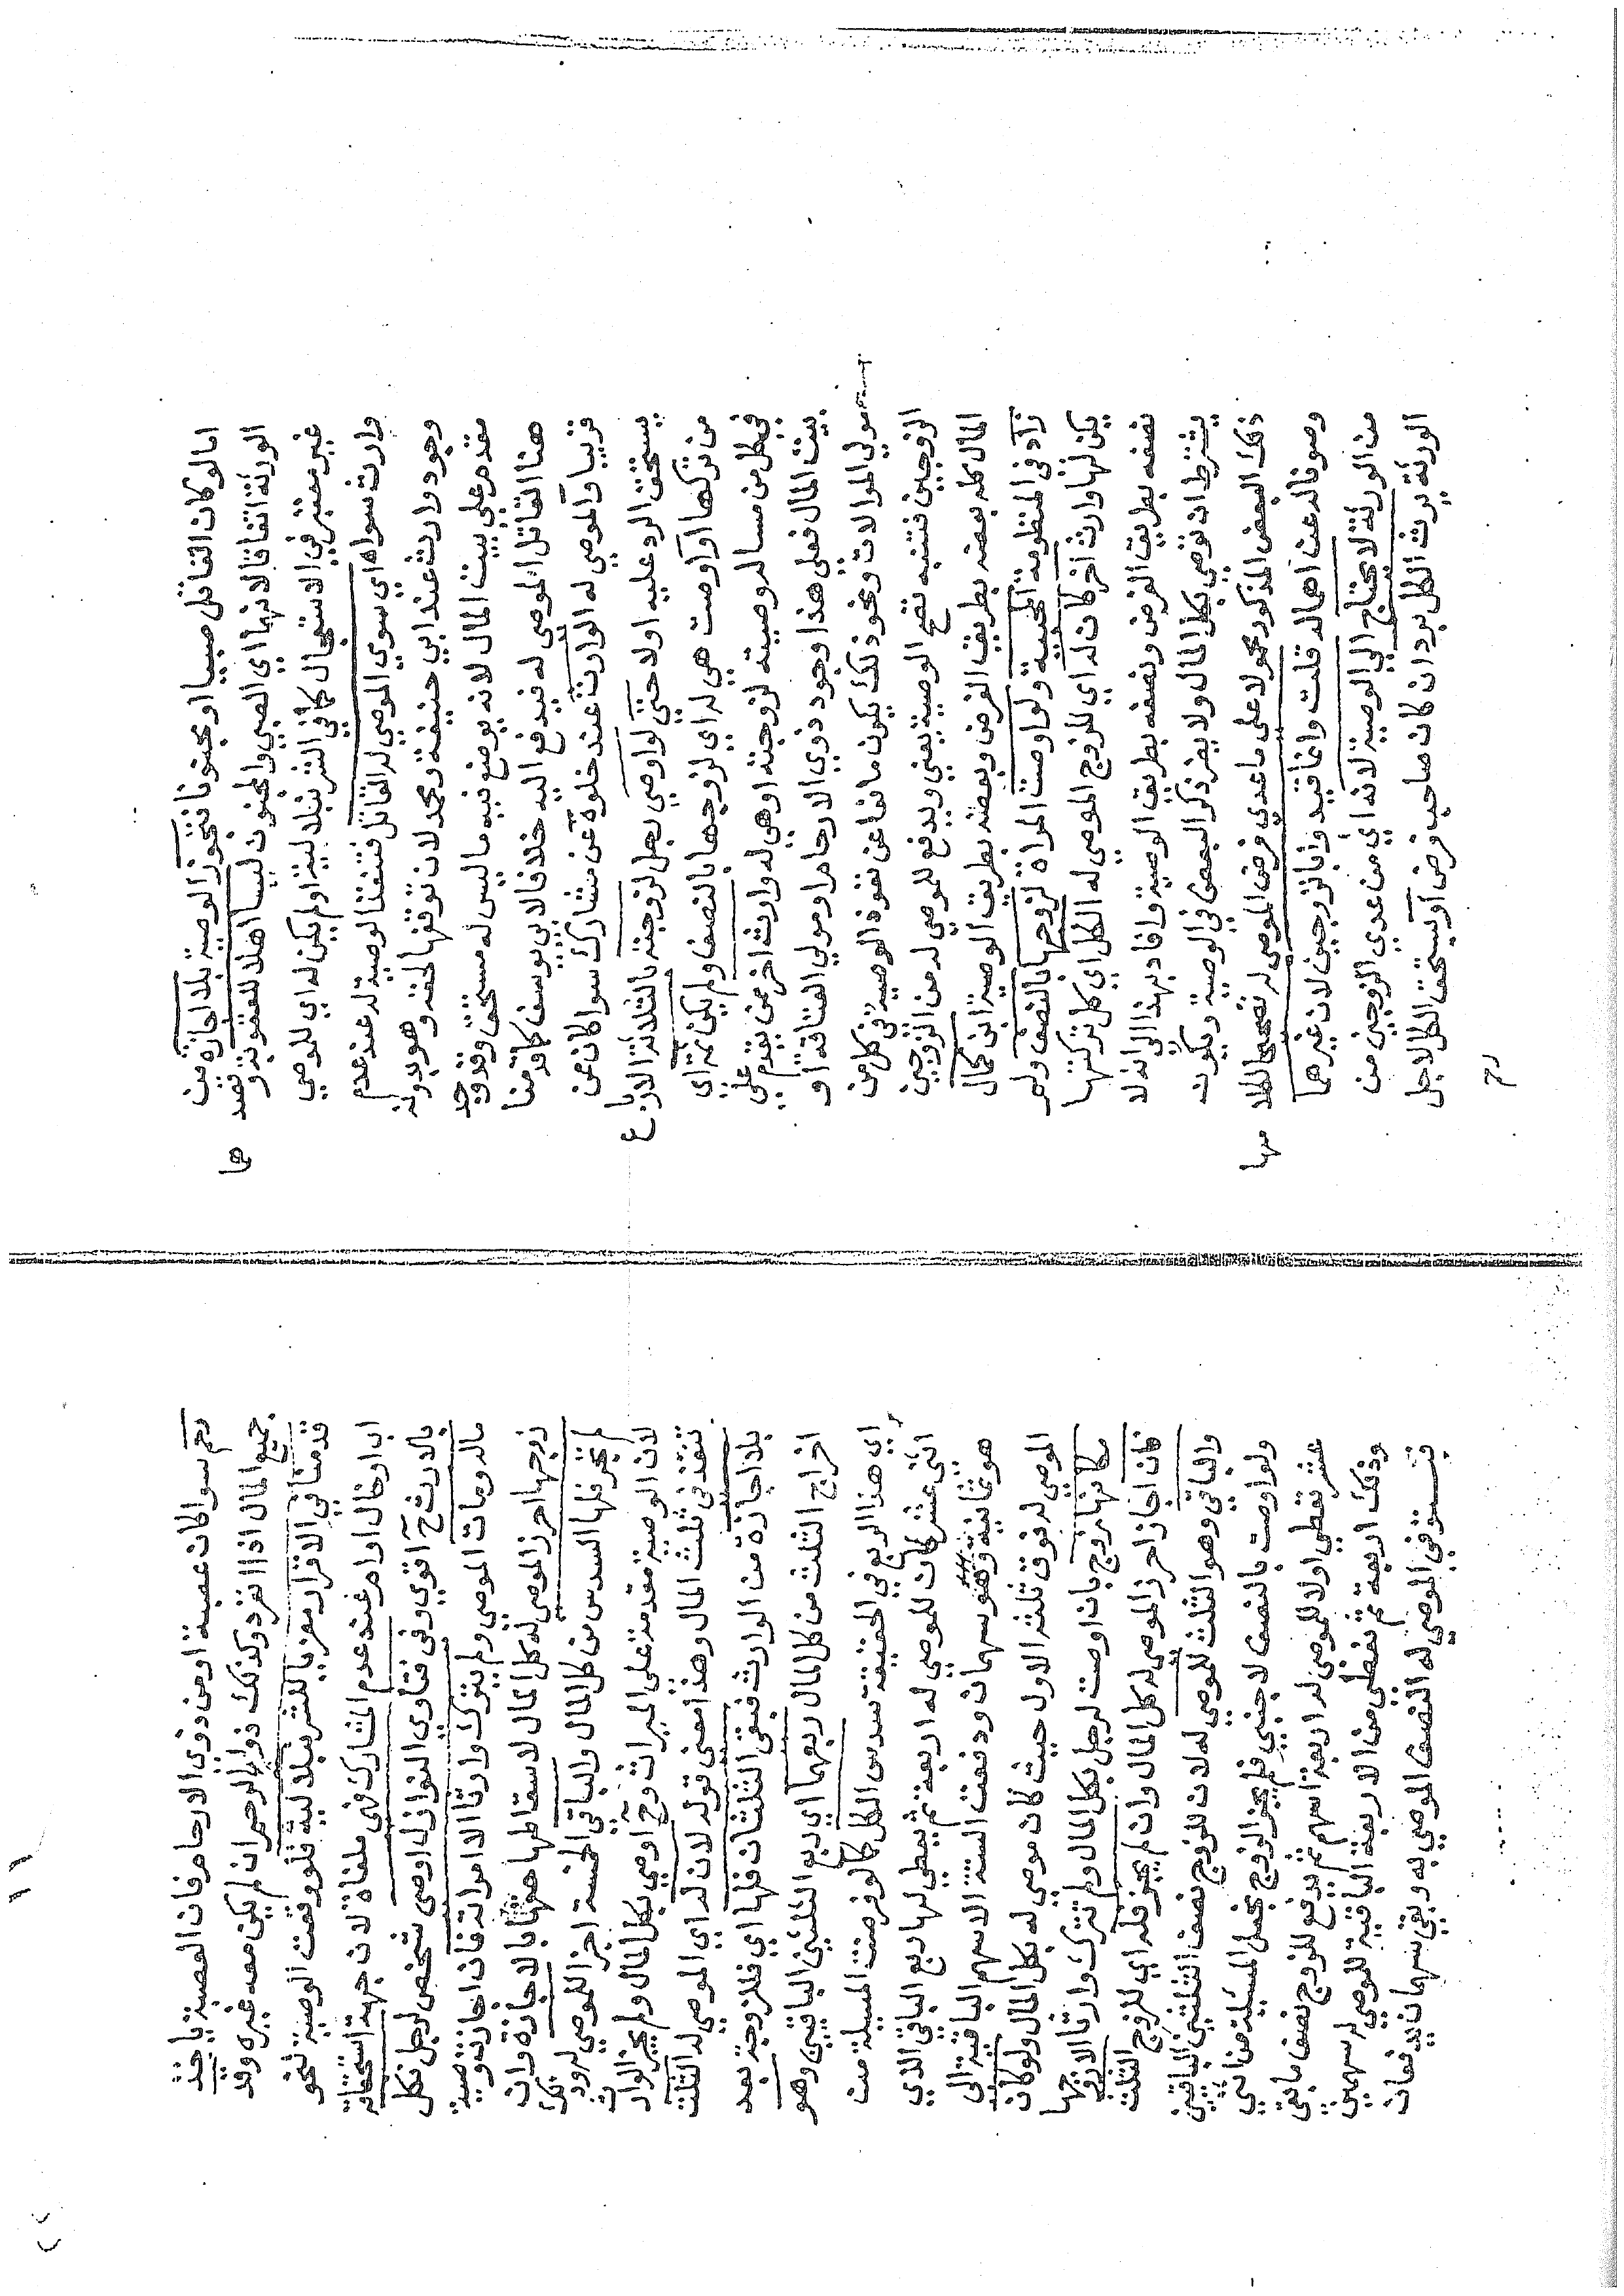 اما لو كان القاتل صبيا او مجنونا فتجوز الوصية بلا اجازة من
الورثة اتفاقا لانهما اي الصبي والمجنون ليسا اهلا للعقوبة وقصد
غير معتبر في الاستعجال كما في الشرنبلالية او لم يكن له اي للموصي
وارث سواه اي سوي الموصي له القاتل فتنفذ الوصية له عند عدم
وجود وارث عند ابي حنيفة ومحمد لان توقفها لحقه وهو بدونه
مقدم علي بيت المال لانه يوضع فيه ما ليس له مستحق وقد وجد
هنا القاتل الموصي له فيدفع اليه خلافا لابي يوسف كما قدمنا
قريبا والموصي له الوارث عند خلوه عن مشارك سوا كان عن
يستحق الرد عليه اولا حتي لو اوصي رجل لزوجته بالثلاثة الارباع
من تركها او اوصت هي له اي لزوجها بالنصف ولم يكن ثمة اي
في كل من مسالة وصيته لزوجته او هي له وارث اخر ممن يقدم علي
بيت المال فعلي هذا وجود ذوي الارحام او مولي العتاقة او
مولي الموالات ونحو ذلك يكون مانعا عن نفوذ الوصية في كل من
الزوجين فتنبه تصح الوصية يعني ويدفع للموصي له من الزوجين
المال كله بعضه بطريق الفرض وبعضه بطريق الوصية ابن كمال
زاد في المنظومة المحبية ولو اوصت المراة لزوجها بالنصف ولم
يكن لها وارث اخر كان له اي للزوج الموصي له الكل اي كل تركتها
نصفه بطريق الفرض ونصفه بطريق الوصية وافاد بهذا الي انه لا
يشترط ان توصي بكل المال ولا يضر ذكر البعض في الوصية ويكون
ذلك البعض المذكور محمولا علي ما عدي فرض الموصي له تصحيحا للكلام
وصوفا له عن اهماله قلت وانما قيدوا بالزوجين لان غيرهما
من الورثة لا يحتاج الي الوصية لانه اي من عدي الزوجين من
الورثة يرث الكل برد ان كان صاحب فرض او يستحق الكل لاجل
رحم
رحم سوا كان عصبة او من ذوي الارحام فان العصبة ياخذ
جميع المال اذا انفرد وكذلك ذوا الرحم ان لم يكن معه غيره وقد
قدمنا في الاقرار معزيا للشرنبلالية فلو وقعت الوصية لنحو
اب او خال او ام عند عدم المشارك فهي ملغاة لان جهة استحقاقه
بالارث ح اقوي وفي فتاوي النوازل اوصي شخص لرجل بكل
ماله ومات الموصي ولم يترك وارثا الا امراته فان اجازت وصيته
زوجها احرز الموصي له كل المال لاسقاطها حقها بالاجازة وان
لم تجز فلها السدس من كل المال والباقي الخمسة اجزا للموصي له بكل
لان الوصية مقدمة علي الميراث وح اوصي بكل المال ولم يجز الوارث
تنفذ في ثلث المال وهذا معني قوله لان له اي الموصي له الثلث
بلا اجازة من الوارث فبقي الثلثان فلها اي فللزوجة بعد
اخراج الثلث من كل المال ربعهما اي ربع الثلثين الباقيين وهو
اي هذا الربع في الحقيقة سدس الكل كما لو فرضت المسيلة من
اثني عشر كان للموصي له اربعة ثم يعطي لها ربع الباقي الذي
هو ثمانية وهو سهمان ودفعت الستة الاسهم الباقية الي
الموصي له فوق ثلثه الاول حيث كان موصي له بكل المال ولو كان
مكانها زوج بان اوصت لرجل بكل المال ولم تترك وارثا الا زوجها
فان اجاز احرز الموصي له كل المال وان لم يجز فله اي للزوج الثلث
والباقي وهو الثلث للموصي له لان للزوج نصف الثلثين الباقيين
ولو اوصت بالنصف لاجنبي فلم يجز الزوج تجعل المسيلة من اثني
عشر تعطي اولا للموصي له اربعة اسهم ثم يدفع للزوج نصف ما بقي
وذلك اربعة ثم تعطي من الاربعة الباقية للموصي له سهمين
فتستوفي الموصي له النصف الموصي به وبقي سهمان يدفعان